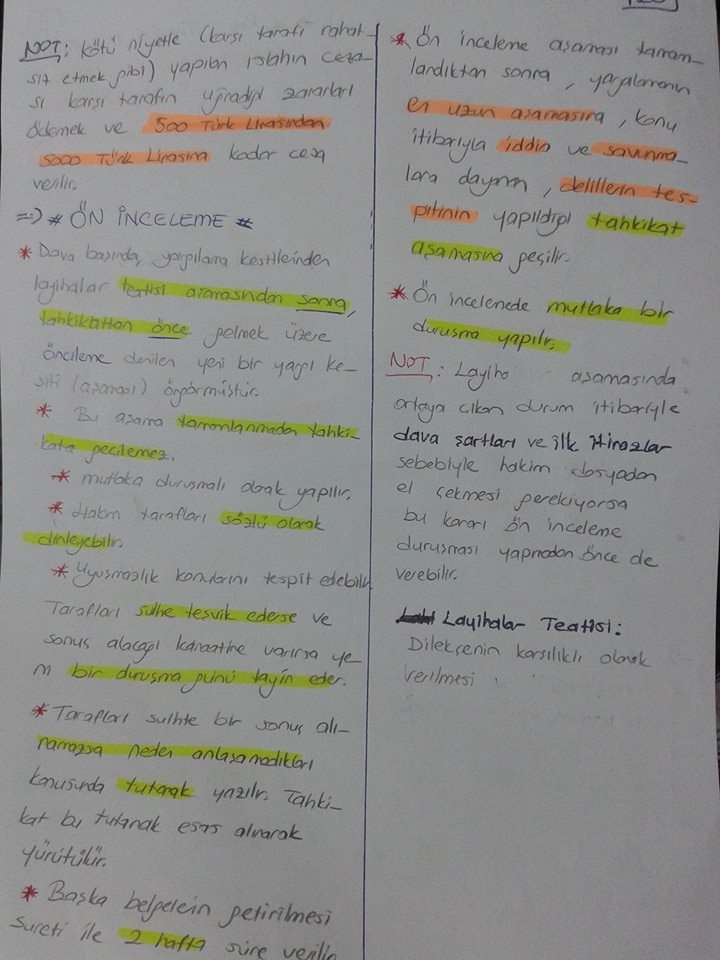 NOT: Kötü niyetle (karşı tarafı rahat-
sız etmek gibi) yapılan ıslahın ceza-
sı karşı tarafın uğradığı zararları
ödemek ve 500 Türk Lirasından
5000 Türk Lirasına kadar ceza
verilir.
=> # ÖN İNCELEME #
* Dava başında, yargılama kesitlerinden
layihalar teatisi aşamasından sonra,
tahkikattan önce gelmek üzere
önceleme denilen yeni bir yargı ke-
siti (aşaması) öngörmüştür.
* Bu aşama tamamlanmadan tahki-
kata geçilemez.
* mutlaka duruşmalı olarak yapılır.
* Hakim tarafları sözlü olarak
dinleyebilir.
* Uyuşmazlık konularını tespit edebilir
Tarafları sulhe teşvik ederse ve
sonuç alacağı kanaatine varırsa ye-
ni bir duruşma günü tayin eder.
* Tarafları sulhte bir sonuç alı-
namazsa neden anlaşamadıkları
konusunda tutanak yazılır. Tahki-
kat bu tutanak esas alınarak
yürütülür.
* Başka belgelerin getirilmesi
sureti ile 2 hafta süre verilir
* Ön inceleme aşaması tamam-
landıktan sonra, yargılamanın
en uzun aşamasına, konu
itibarıyla iddia ve savunma-
lara dayanan, delillerin tes-
pitinin yapıldığı tahkikat
aşamasına geçilir.
* Ön incelemede mutlaka bir
duruşma yapılır.
NOT: Layiha aşamasında
ortaya çıkan durum itibariyle
dava şartları ve ilk itirazlar
sebebiyle hakim dosyadan
el çekmesi gerekiyorsa
bu kararı ön inceleme
duruşması yapmadan önce de
verebilir.
Layihalar Teatisi:
Dilekçenin karşılıklı olarak
verilmesi